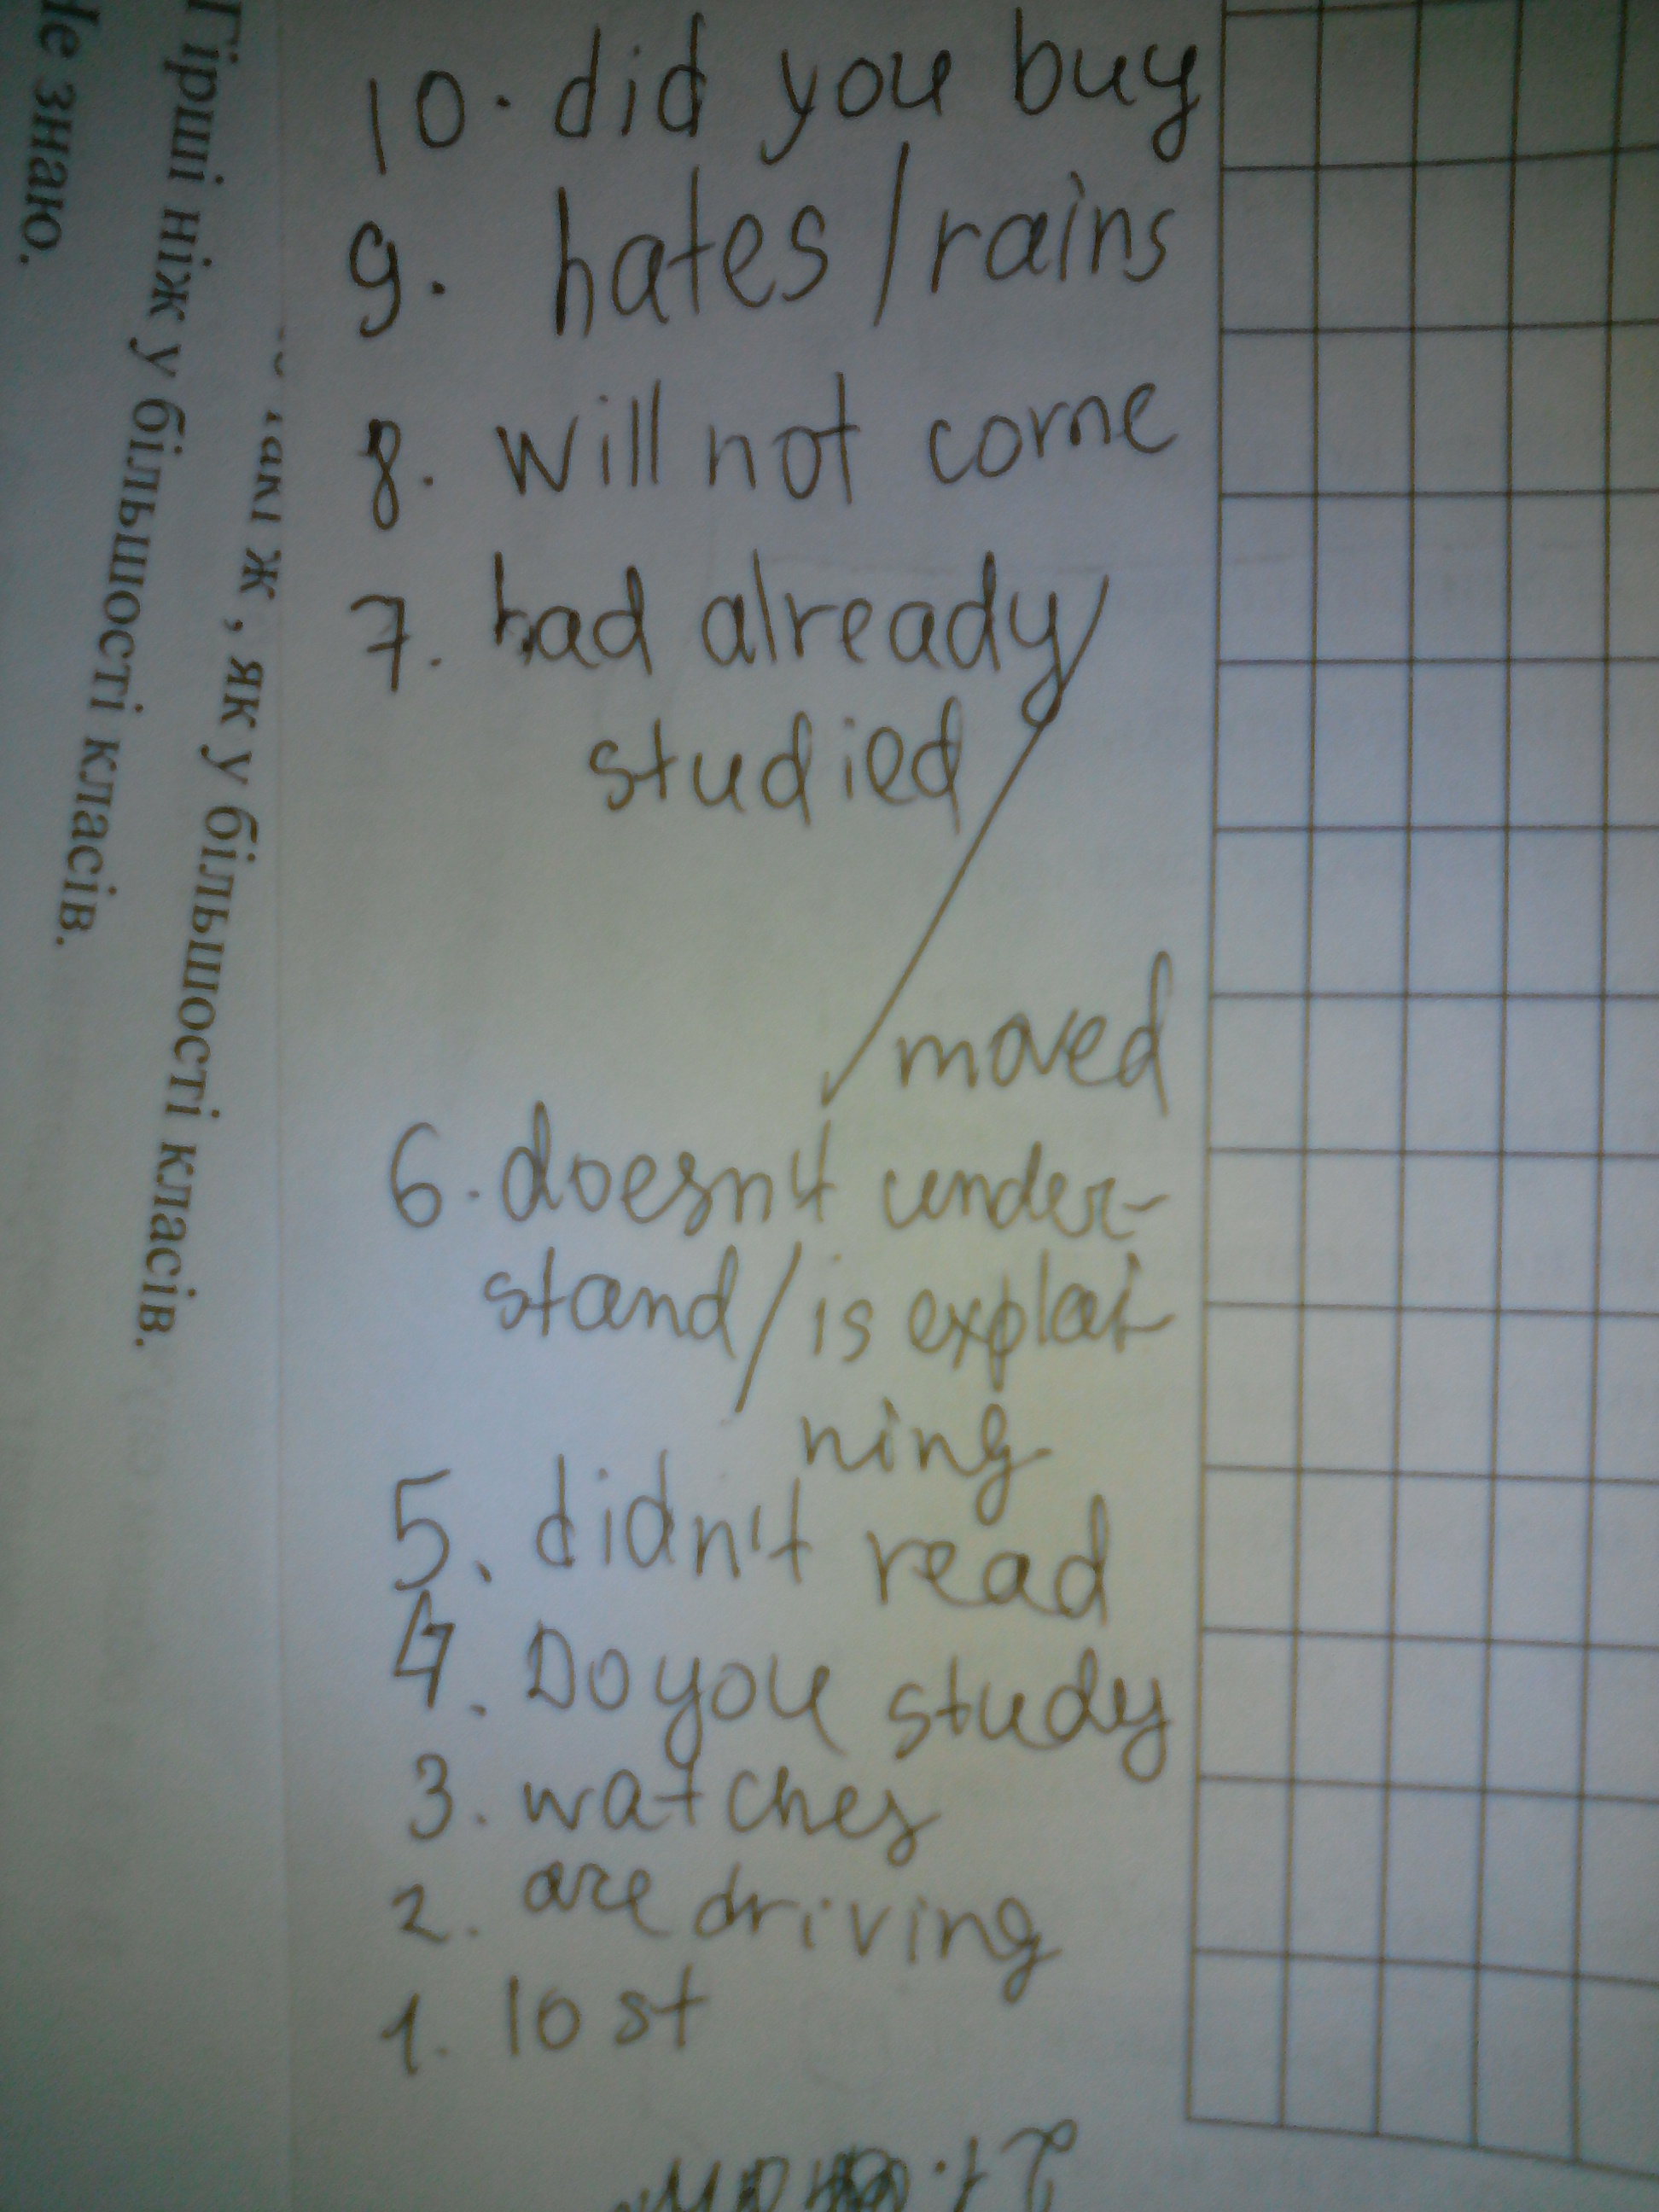 10. did you buy
9. hates/rains
8. will not come
7. had already/
studied
moved
6. doesn't under-
stand/is explai-
ning
5. didn't read
4. Do you study
3. watches
2. are driving
1. lost
такі ж, як у більшості класів.
Гірші ніж у більшості класів.
Не знаю.